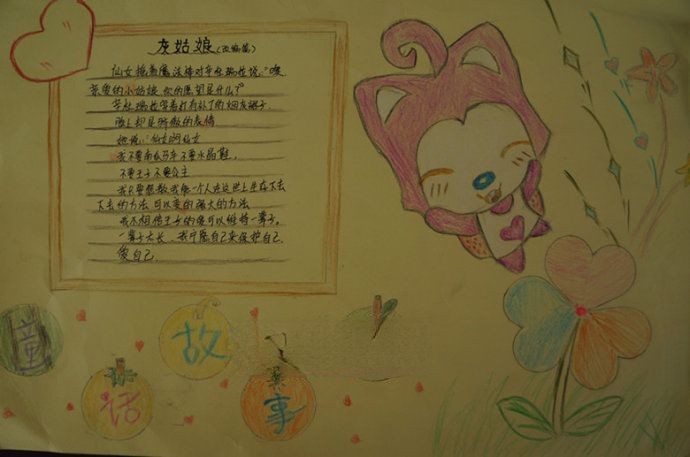 灰姑娘(改编篇)
仙女挥着魔法棒对辛杜瑞拉说:"嗨
亲爱的小姑娘,你的愿望是什么?"
辛杜瑞拉穿着打着补丁的烟灰裙子
脸上却是骄傲的表情
她说:"仙女啊仙女
我不要南瓜马车不要水晶鞋,
不要王子不要公主
我只要你教我像一个人在这世上生存下去
下去的方法,可以变的强大的方法
我不相信王子的爱可以维持一辈子。
一辈子太长,我宁愿自己来保护自己
爱自己
童
话
故
事